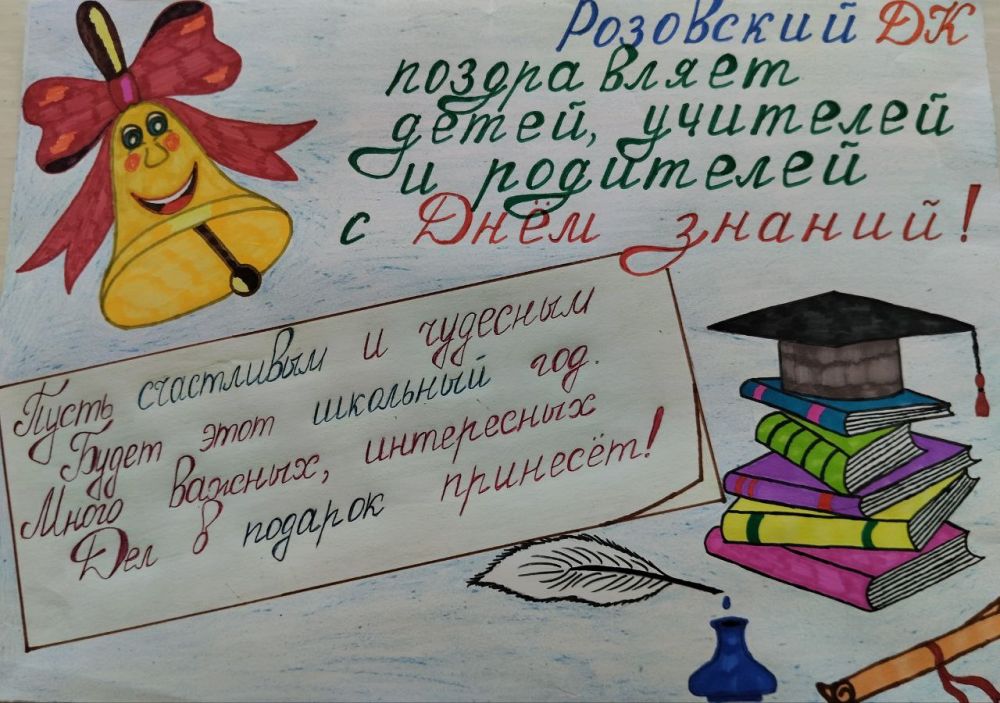 Розовский ДК
поздравляет
детей, учителей
и родителей
с Днём знаний!
Пусть счастливым и чудесным
Будет этот школьный год.
Много важных, интересных
Дел в подарок принесёт!